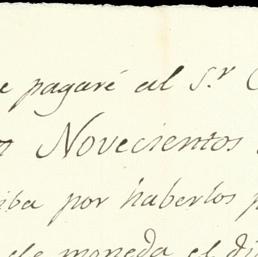 e pagaré al S.r
Novecientos
iba por haberlos p
de moneda el di